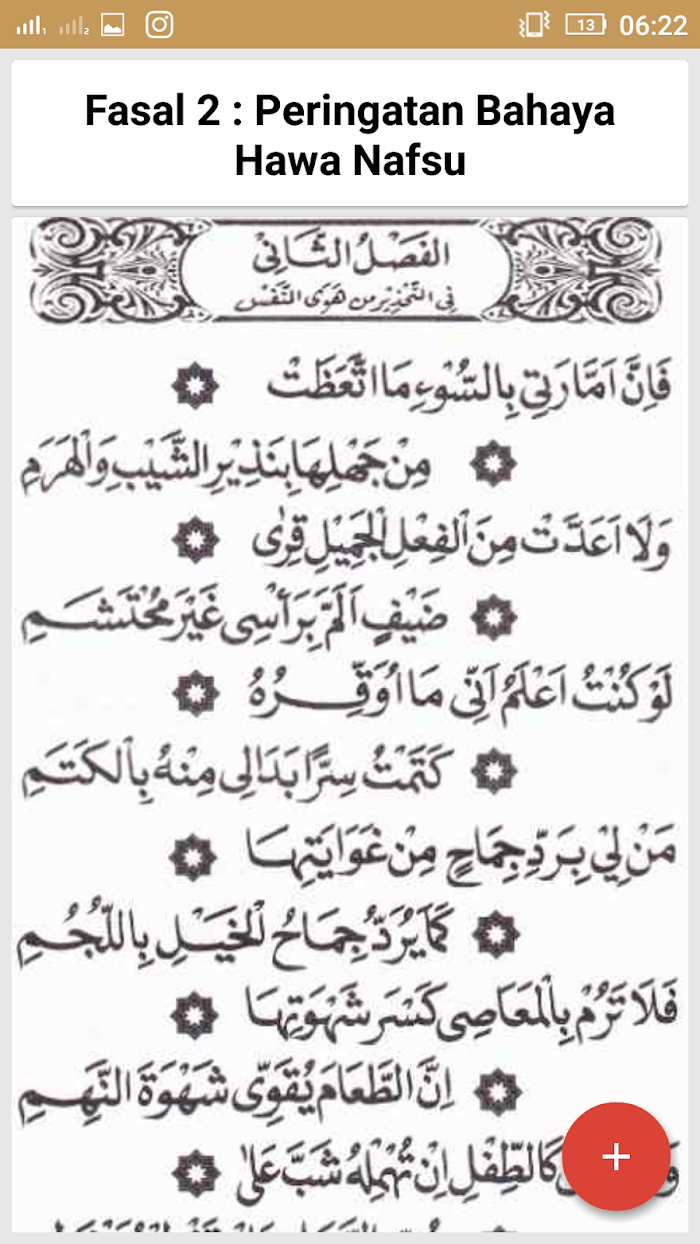 1 2 13 06:22
Fasal 2 : Peringatan Bahaya
Hawa Nafsu
الفَصْلُ الثَّانِيْ
فِي التَّحْذِيْرِ مِنْ هَوَى النَّفْسِ
فَاِنَّ اَمَّارَتِيْ بِالسُّوْءِ مَا اتَّعَظَتْ
مِنْ جَهْلِهَا بِنَذِيْرِ الشَّيْبِ وَالْهَرَمِ
وَلَا اَعَدَّتْ مِنَ الْفِعْلِ الْجَمِيْلِ قِرٰى
ضَيْفٍ اَلَمَّ بِرَأْسِى غَيْرَ مُحْتَشَمِ
لَوْ كُنْتُ اَعْلَمُ اَنِّى مَا اُوَقِّرُهُ
كَتَمْتُ سِرًّا بَدَالِى مِنْهُ بِالْكَتَمِ
مَنْ لِيْ بِرَدِّ جِمَاحٍ مِنْ غَوَايَتِهَا
كَمَا يُرَدُّ جِمَاحُ الْخَيْلِ بِاللُّجُمِ
فَلَا تَرُمْ بِالْمَعَاصِى كَسْرَ شَهْوَتِهَا
اِنَّ الطَّعَامَ يُقَوِّى شَهْوَةَ النَّهِمِ
كَالطِّفْلِ اِنْ تُهْمِلْهُ شَبَّ عَلٰى